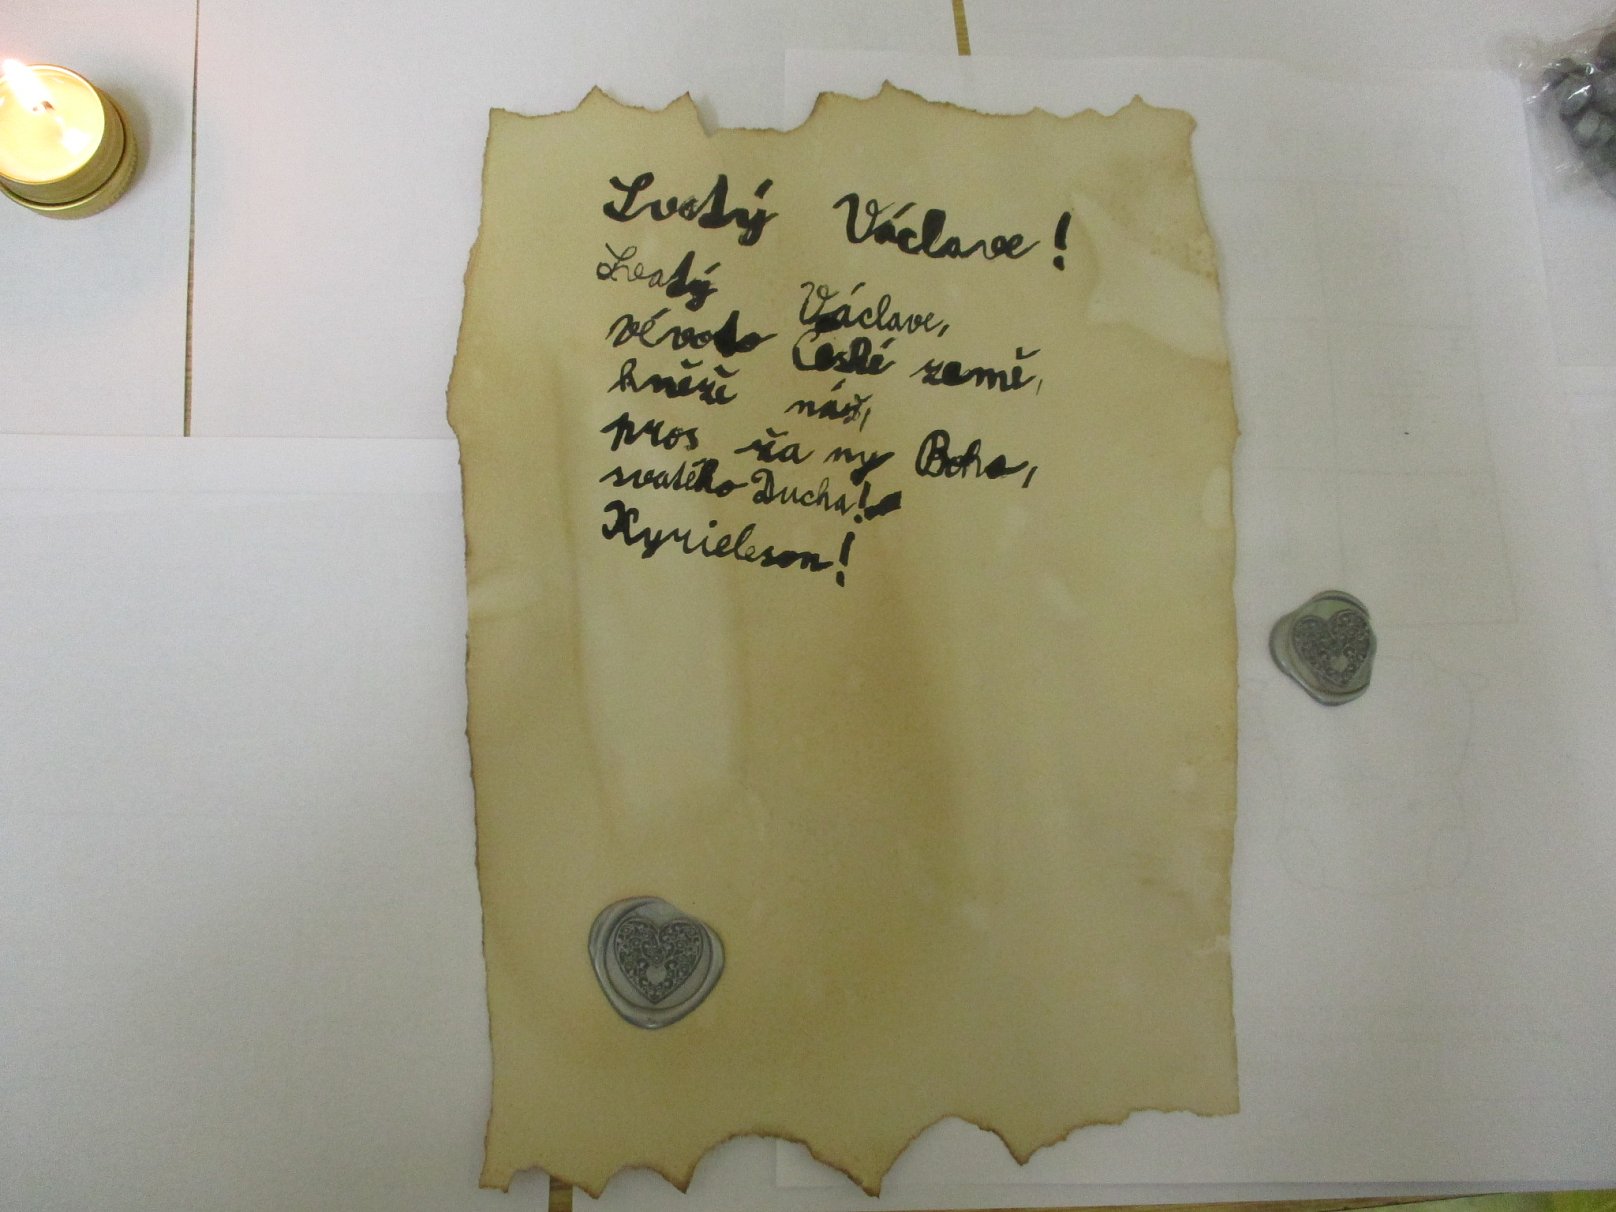 Svatý Václave!
Svatý Václave,
vévodo České země,
kněže náš,
pros za ny Boha,
svatého Ducha!
Kyrieleson!